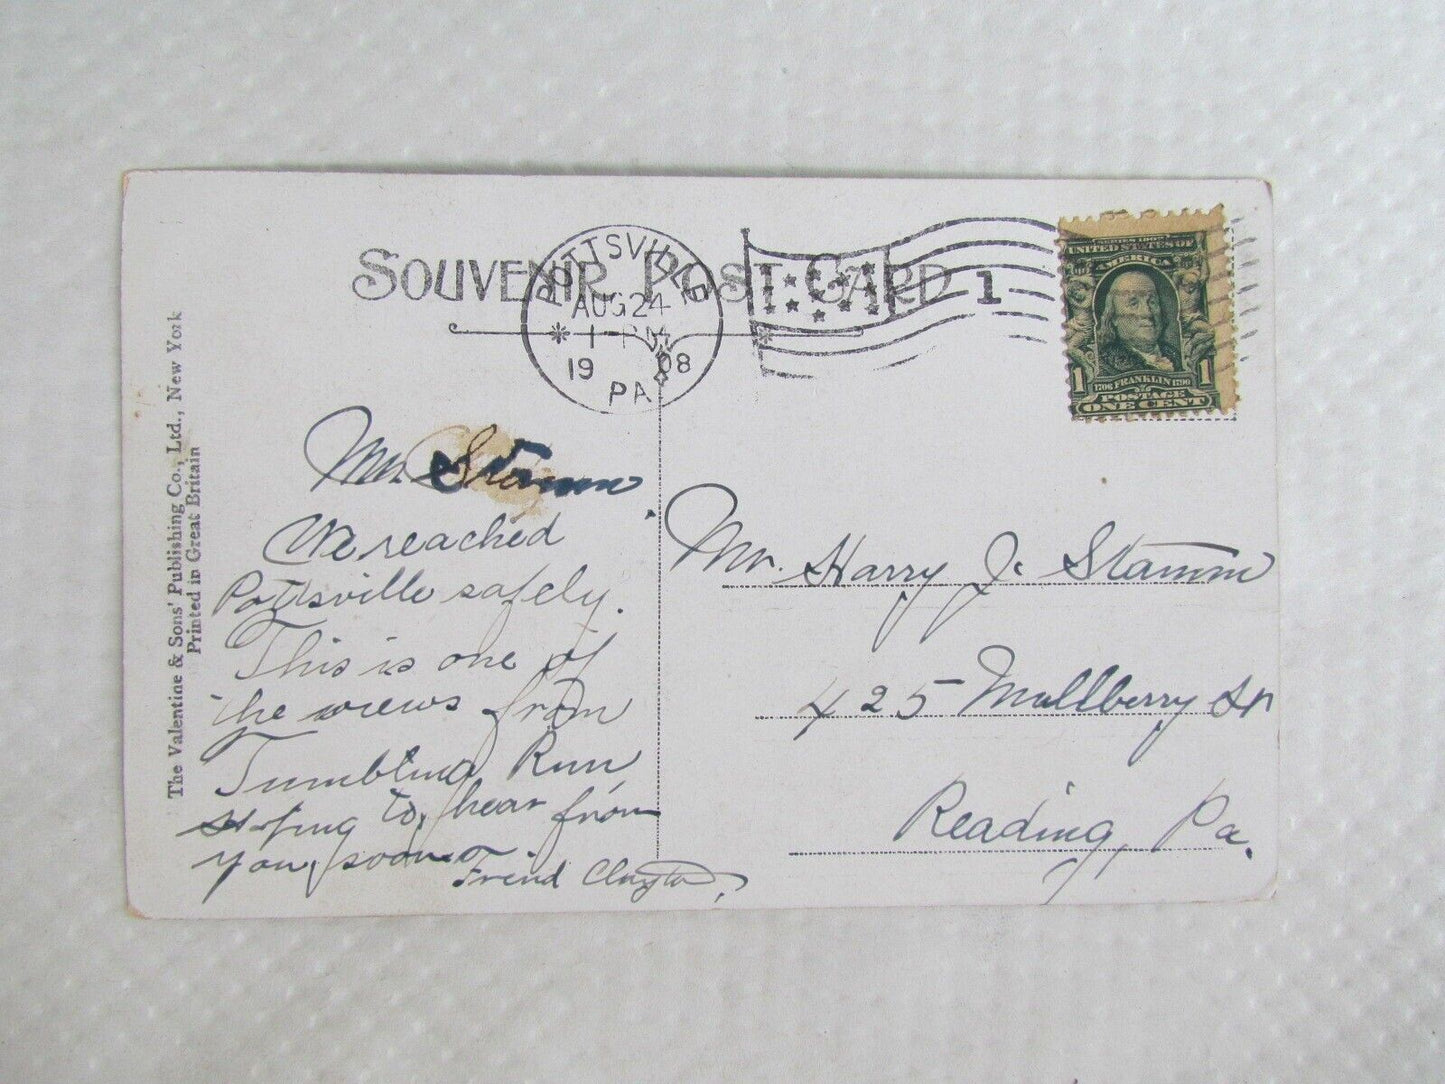 SOUVENIR POST CARD
POTTSVILLE
AUG 24
1 PM
1908
PA.
1
SERIES 1902
UNITED STATES OF
AMERICA
1 1
1706 FRANKLIN 1790
POSTAGE
ONE CENT
The Valentine & Sons' Publishing Co., Ltd., New York
Printed in Great Britain
Mr. Stamm
We reached
Pottsville safely.
This is one of
the views from
Tumbling Run
Hoping to hear from
you soon.
Freind Clayton.
Mr. Harry J. Stamm
425 Mullberry St
Reading, Pa.